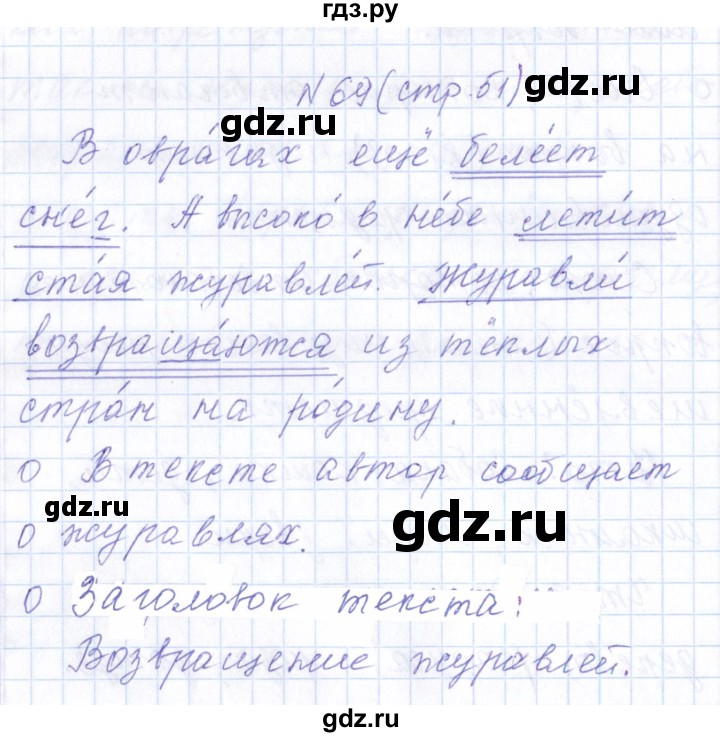 гдз.ру
№69(стр.51)
gdz.ru
gdz.ru
В овра́гах ещё беле́ет
сне́г. А высоко́ в не́бе лети́т
ста́я журавле́й. Журавли́
возвраща́ются из тёплых
стра́н на ро́дину.
о В тексте автор сообщает
gdz.ru
gdz.ru
о журавлях.
о Заголовок текста:
Возвращение журавлей.
gdz.ru